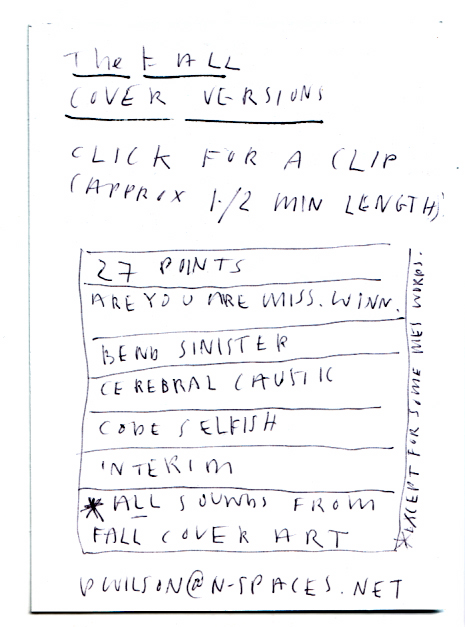 The FALL
COVER VERSIONS
CLICK FOR A CLIP
(APPROX 1/2 MIN LENGTH)
27 POINTS
ARE YOU ARE MISS. WINN.
BEND SINISTER
CEREBRAL CAUSTIC
CODE SELFISH
INTERIM
*ALL SOUNDS FROM
FALL COVER ART
*EXCEPT FOR SOME MES WORDS.
PWILSON@N-SPACES.NET